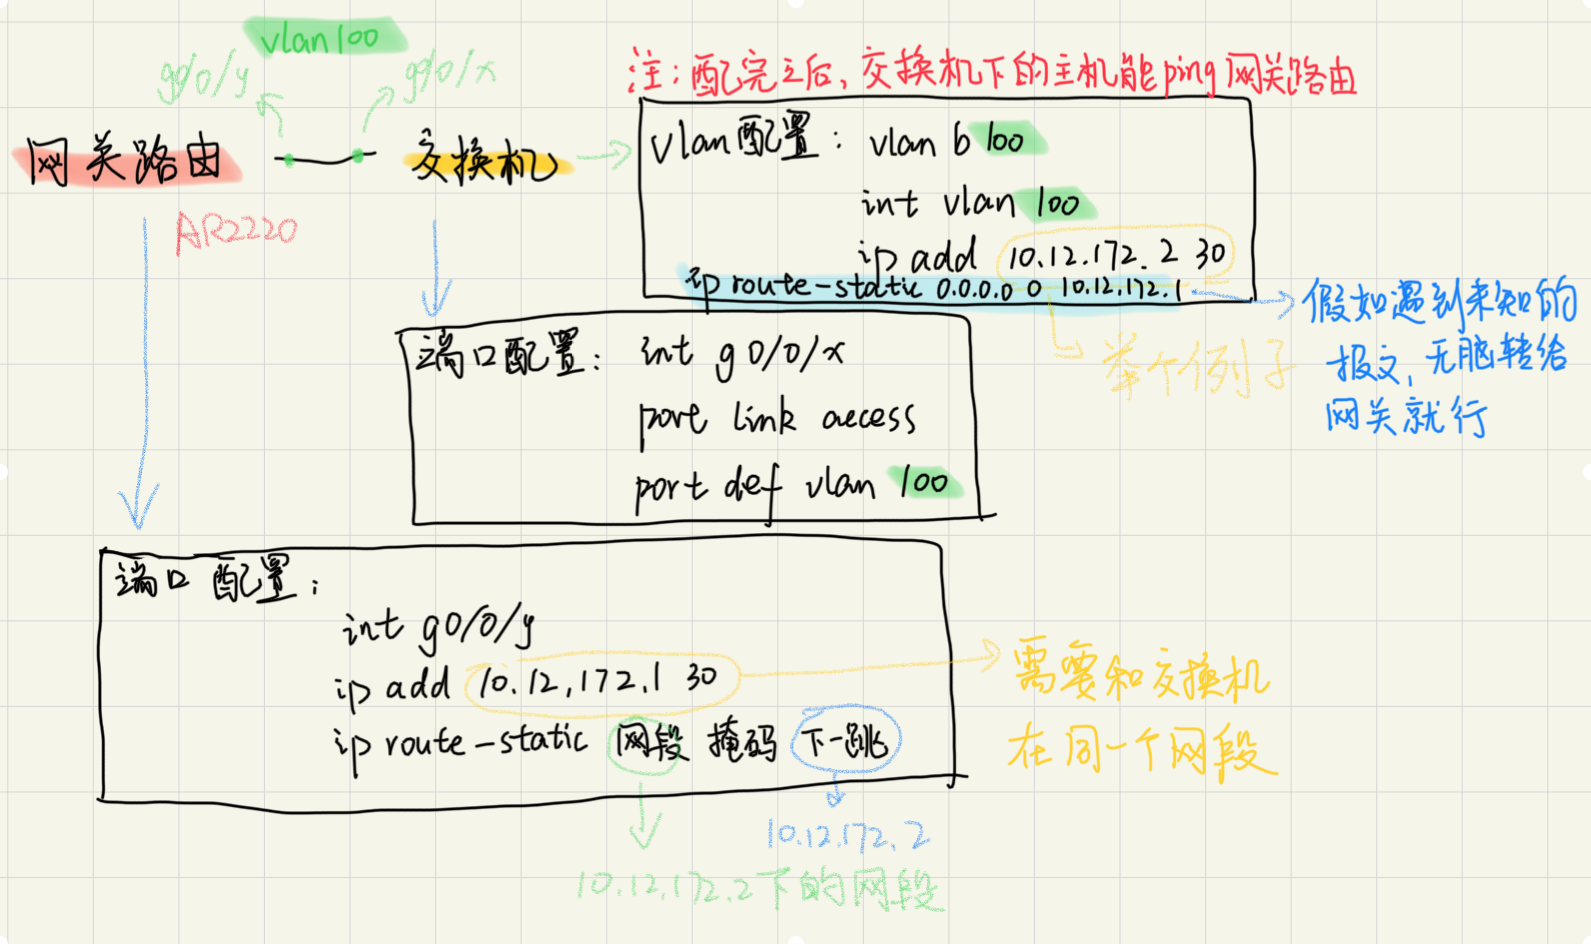 vlan100
g0/0/y
g0/0/x
注:配完之后,交换机下的主机能ping网关路由
网关路由
交换机
AR2220
vlan配置: vlan b 100
int vlan 100
ip add 10.12.172.2 30
ip route-static 0.0.0.0 0 10.12.172.1
假如遇到未知的
报文,无脑转给
网关就行
举个例子
端口配置: int g0/0/x
port link access
port def vlan 100
端口配置:
int g0/0/y
ip add 10.12.172.1 30
ip route-static 网段 掩码 下一跳
需要和交换机
在同一个网段
10.12.172.2
10.12.172.2下的网段